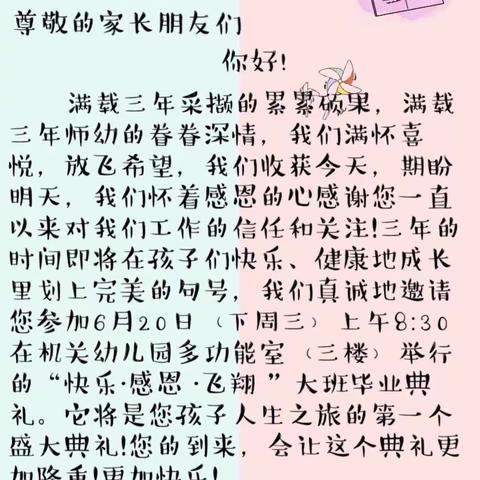 尊敬的家长朋友们
你好!
满载三年采撷的累累硕果，满载
三年师幼的眷眷深情，我们满怀喜
悦，放飞希望，我们收获今天，期盼
明天，我们怀着感恩的心感谢您一直
以来对我们工作的信任和关注!三年的
时间即将在孩子们快乐、健康地成长
里划上完美的句号，我们真诚地邀请
您参加6月20日（下周三）上午8:30
在机关幼儿园多功能室（三楼）举行
的“快乐·感恩·飞翔 ”大班毕业典
礼。它将是您孩子人生之旅的第一个
盛大典礼!您的到来，会让这个典礼更
加隆重!更加快乐!